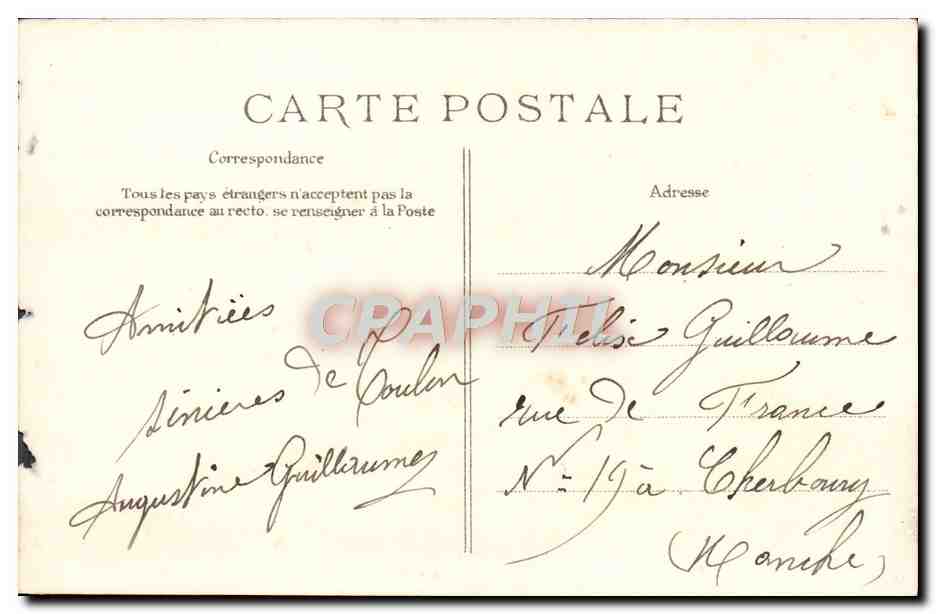 CARTE POSTALE
Correspondance
Tous les pays étrangers n'acceptent pas la
correspondance au recto. se renseigner à la Poste
Amitiées
sinieres de Toulon
Augustine Guillaume
Adresse
Monsieur
Felix Guillaume
rue de France
No = 19 à Cherbourg
(Manche)
CRAPHIL